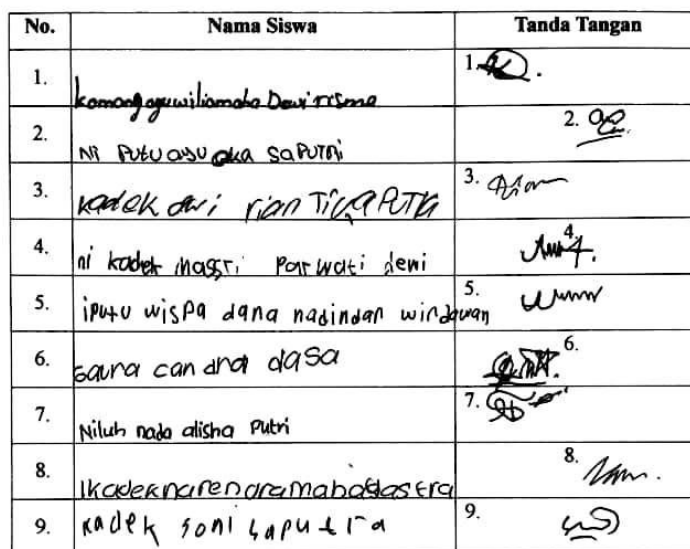 No. Nama Siswa Tanda Tangan
1. komang ayu wiliamaha Dewi risma 1.
2. Ni Putu ayu eka saPutri 2.
3. kadek dwi rian Tirta PuTra 3.
4. ni kadek massri Parwati dewi 4.
5. iputu wisPa dana nadindan windawan 5.
6. Gaura candra dasa 6.
7. Niluh nada alisha Putri 7.
8. Ikadeknarendramahadastra 8.
9. kadek soni saputra 9.